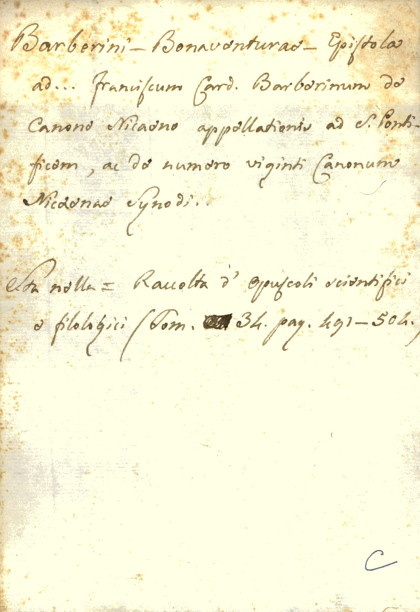 Barberini — Bonaventurae — Epistola
ad... Franciscum Card. Barberinum de
Canone Nicaeno appellationis ad S. Ponti-
ficem, ac de numero viginti Canonum
Nicaenae Synodi.
Sta nella = Raccolta d' opuscoli scientifici
e filologici (Tom. 34. pag. 491 — 504.)
C